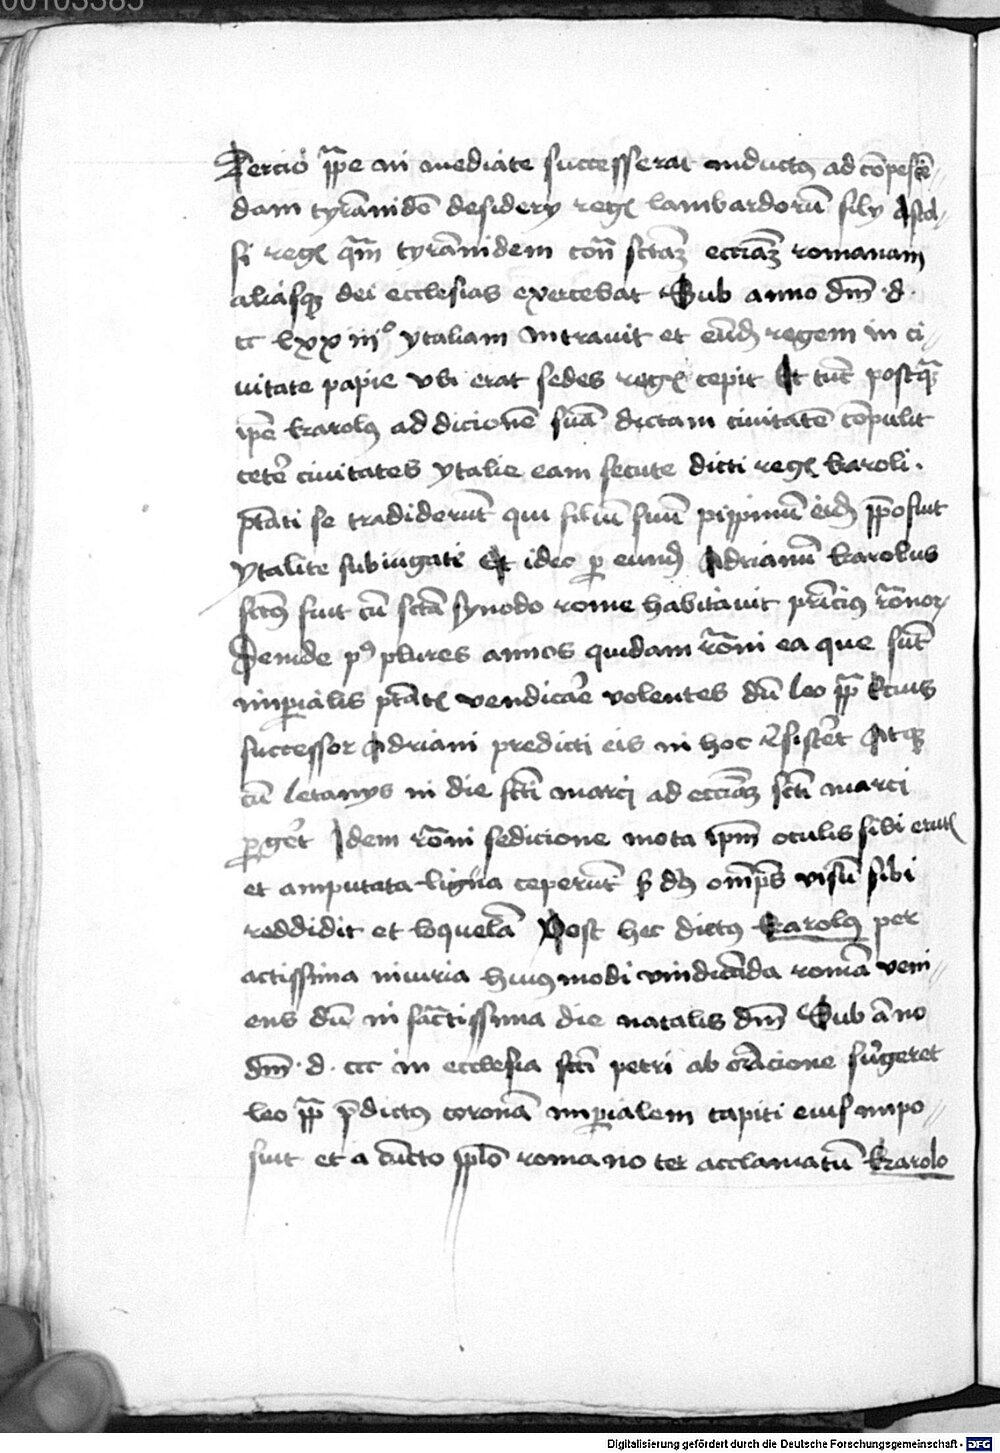 00103385
Tercio p̅p̅e in mediate successerat inductꝯ ad co̅pesce̅//
dam tyra̅nide̅ desidery regꝭ lambardoru̅ fily Astol//
fi regꝭ qua̅ tyra̅nidem con̅ scta̅ꝫ eccia̅ꝫ romanam
aliasqꝫ dei ecclesias exercebat Sub anno dm̅ · d ·
cc lxx iiij° ytaliam intravit et eu̅dꝫ regem in ci//
uitate papie vbi erat sedes regꝭ cepit Et tu̅c postqua̅
ip̅e karolꝯ ad dicione̅ sua̅ dictam ciuitate̅ co̅pulit
cete̅ ciuitates ytalie eam secute dicti regꝭ karoli ·
p̅tati se tradideru̅t qui filiu̅ suu̅ pippinu̅ eidꝫ p̅posuit
ytalie subiugati Et ideo ꝑ eundꝫ Adrianu̅ karolus
sctꝯ fuit cu̅ scta̅ synodo rome habitauit pri̅cius ro̅norꝝ
Deinde pꝯ plures annos quidam ro̅ni ea que su̅t
imꝑialis p̅tatꝭ vendica̅e volentes du̅ leo p̅p̅ t̅cius
successor Adriani predicti eis in hoc r̅siste̅t Atqꝫ
cu̅ letanys in die sc̅ti marci ad eccia̅ꝫ sc̅ti marci
ꝑge̅t Idem ro̅ni sedicione mota ip̅m oculis sibi erutꝭ
et amputata lig̅ua ceperu̅t sꝫ dꝯ om̅p̅s visu̅ sibi
reddidit et loquela̅ Post hec dictꝯ karolꝯ per
actissima iniuria huiꝯmodi vindica̅da roma̅ veni//
ens du̅ in sac̅tissima die natalis dm̅ Sub a̅no
dm̅ · d · ccc in ecclesia sc̅ti petri ab or̅acione surgeret
leo p̅p̅ p̅dictꝯ corona̅ imꝑialem capiti eius impo//
suit et a cu̅cto p̅p̅lo romano ter acclamatu̅ karolo
Digitalisierung gefördert durch die Deutsche Forschungsgemeinschaft - DFG